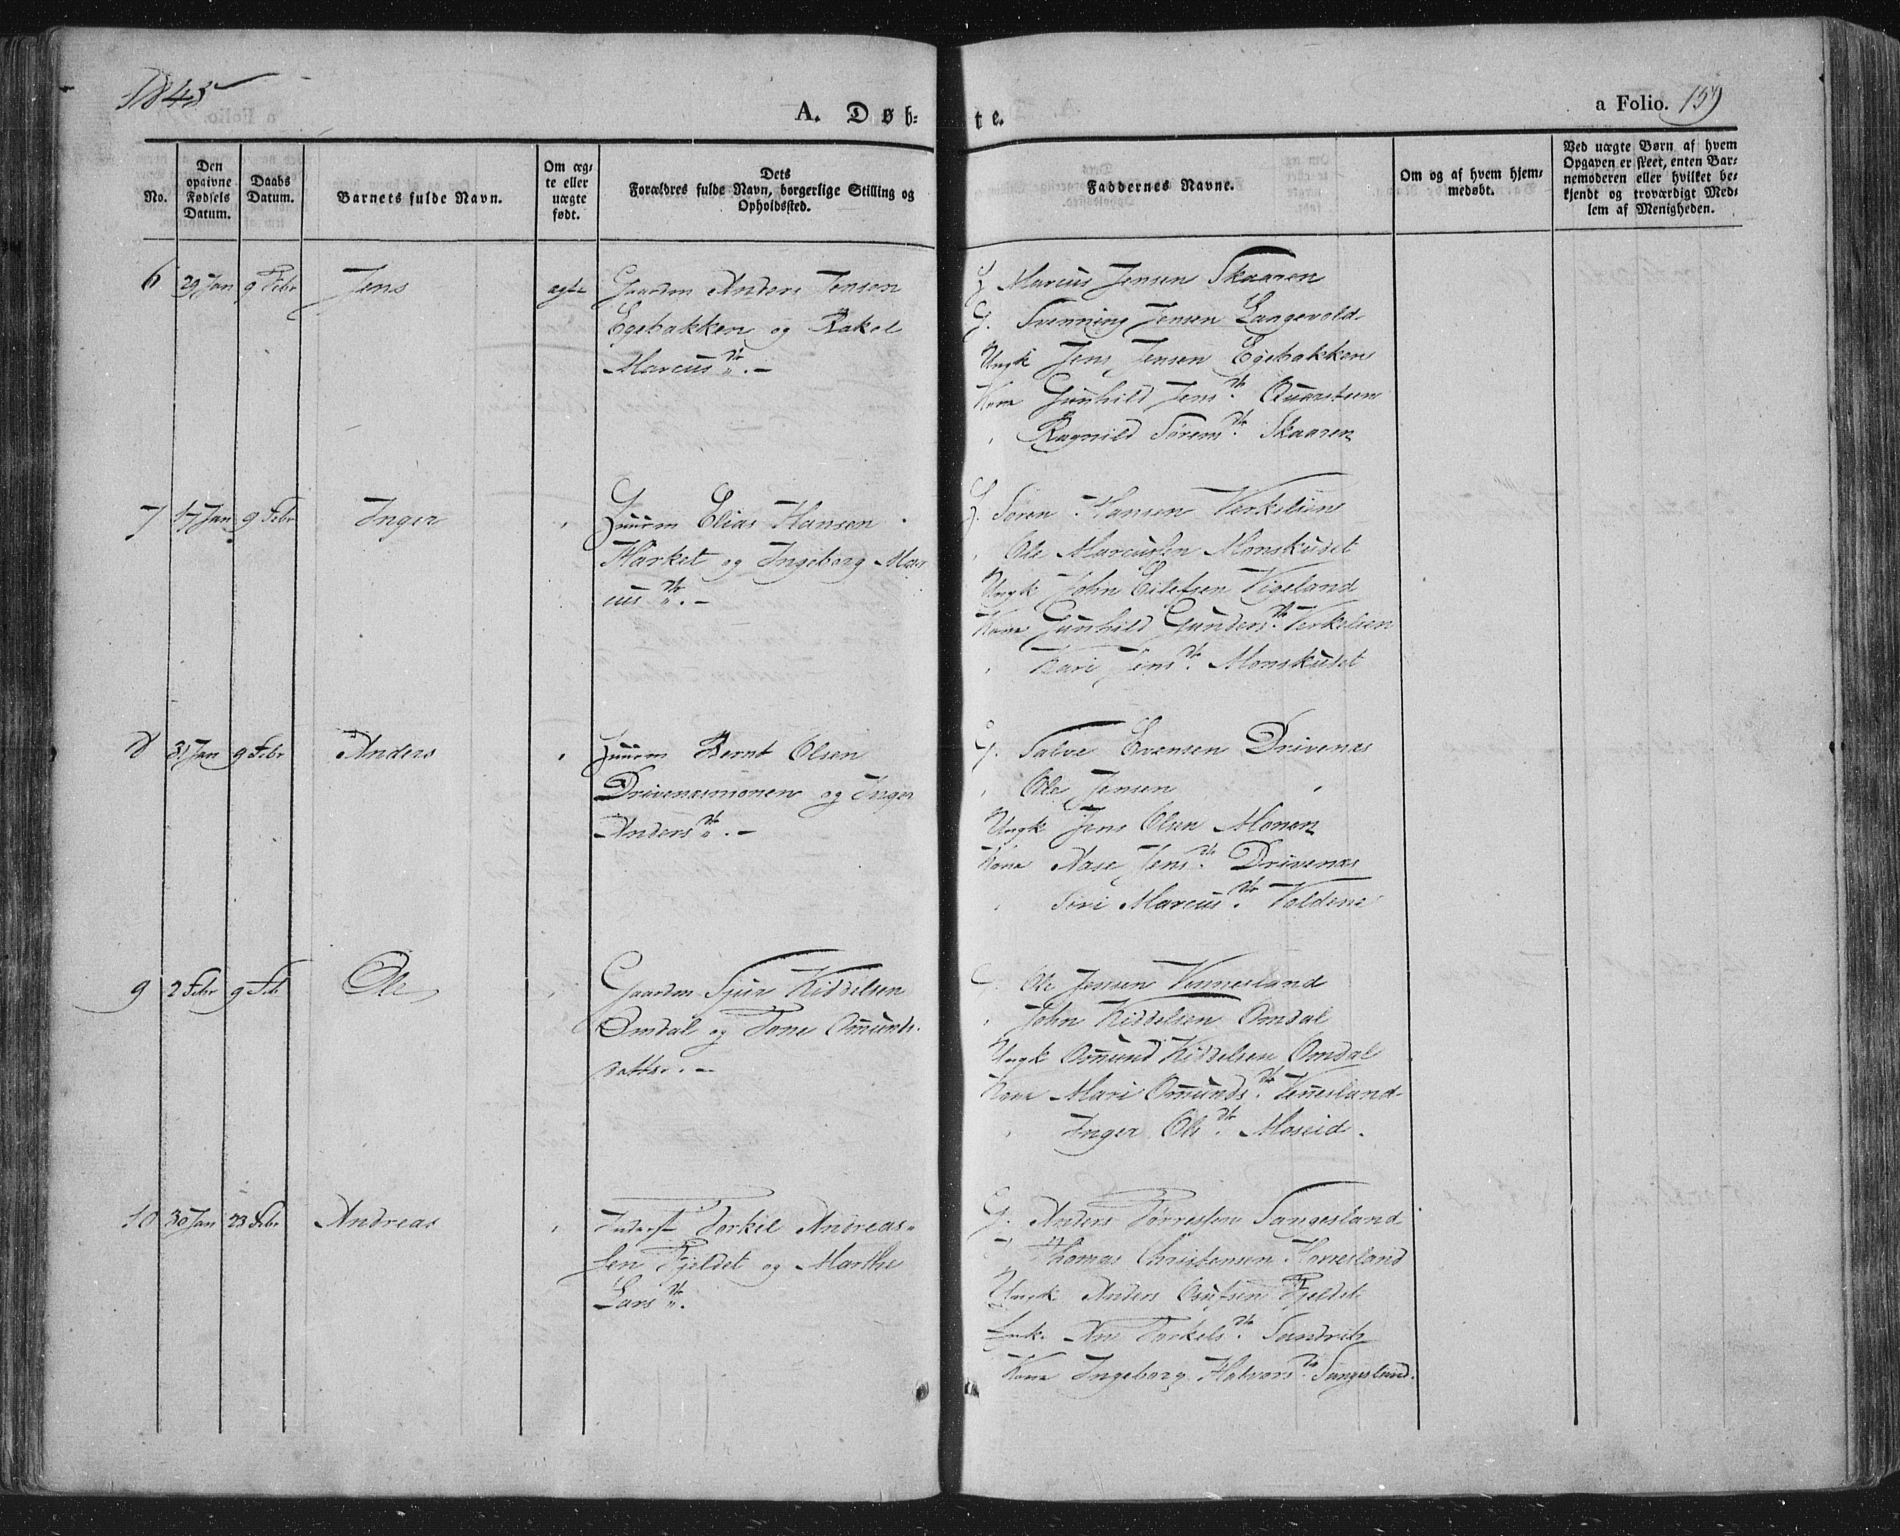 1845
A. Døb-
te.
a Folio. 159
No.
Den opgivne Fødsels Datum.
Daabs Datum.
Barnets fulde Navn.
Om ægte eller uægte født.
Dets Forældres fulde Navn, borgerlige Stilling og Opholdssted.
Faddernes Navne.
Om og af hvem hjemmedøbt.
Ved uægte Børn af hvem Opgaven er skeet, enten Barnemoderen eller hvilket bekjendt og troværdigt Medlem af Menigheden.
6 29 Jan 9 Febr Jens ægte Gaardm Anders Jensen
Egebakken og Rakel
Marcus Dtr. -
G. Marcus Jensen Skaaren
G. Svenning Jensen Langevold
Ungk Jens Jensen Egebakken
Kone Gunhild Jens Dtr. Qvarsteen
Ragnild Sørens Dtr. Skaaren
7 17 Jan 9 Febr Inger " Huusm Elias Hansen
Harket og Ingeborg Mar
cus Dtr. -
G. Søren Hansen Verkelien
" Ole Marcussen Monskuset
Ungk John Eilefsen Vigeland
Kone Gunhild Gunders Dtr. Verkelien
" Kari Jens Dtr. Monskuset
8 31 Jan 9 Febr Anders " Huusm Bernt Olsen
Drivenesmonen og Inger
Anders Dtr. -
G. Salve Evensen Drivenes
" Ole Jensen "
Ungk Jens Olsen Monen
Kone Aase Jens Dtr. Drivenes
" Siri Marcus Dtr. Voldene
9 2 Febr 9 Feb Ole " Gaardm Sjur Kiddelsen
Omdal og Tone Omunds
datter. -
G. Ole Jensen Vennesland
" John Kiddelsen Omdal
Ungk Omund Kiddelsen Omdal
Kone Mari Omunds Dtr. Vennesland
" Inger Ols Dtr. Moseid.
10 30 Jan 23 Febr Andreas " Inderst Torkil Andreas-
sen Fjeldet og Marthe
Lars Dtr.
G. Anders Tørressen Sangesland
" Thomas Christensen Horresland
Ungk Anders Fjeldet
Enk. Ane Torkels Dtr.
Kone Ingeborg Halvors Dtr. Sangesland.